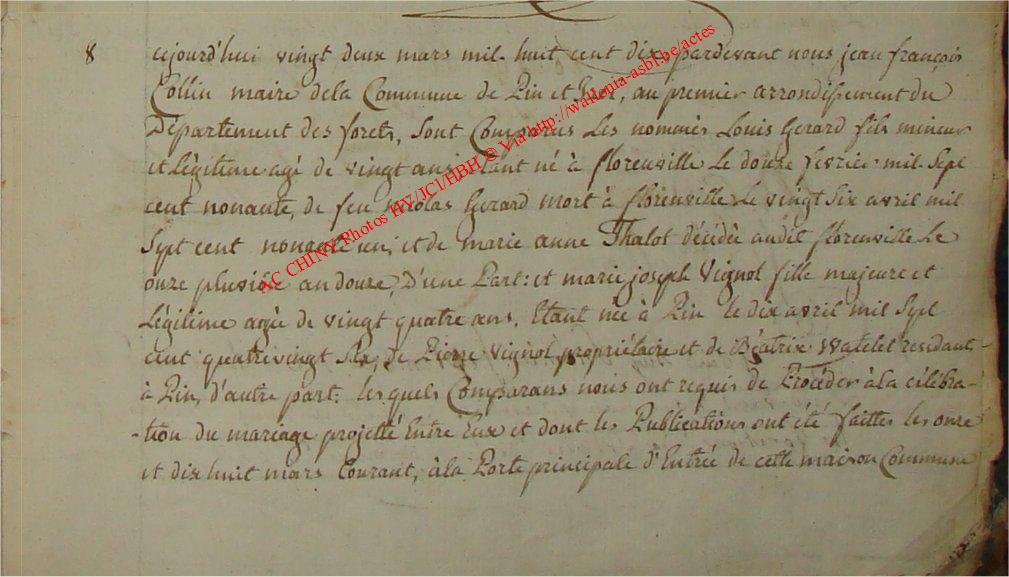 8 cejourd'hui vingt deux mars mil huit cent dix pardevant nous jean françois
Collin maire dela Commune de Pin et Izel, au premier arrondissement du
Département des forets, sont Comparus Les nommés Louis Gerard fils mineur
et Légitime agé de vingt ans, etant né à florenville Le douze fevrier mil Sept
cent nonante, de feu Nicolas Gerard mort à florenville Le vingt Six avril mil
Sept cent nonante un, et de marie anne Thalot décédée audit florenville Le
onze pluviose an douze, D'une Part: et marie joseph Vignol fille majeure et
Légitime agée de vingt quatre ans, Etant née à Pin le dix avril mil Sept
cent quatrevingt Six, de Pierre Vignol propriétaire et de Béatrix Watelet residant
à Pin, d'autre part: lesquels Comparans nous ont requis de Proceder à la célébra-
-tion du mariage projetté Entre Eux et dont les Publications ont été faittes les onze
et dix huit mars Courant, à la Porte principale d'Entrée de cette maison Commune
AC CHINY Photos HY/JCl/HBH © Via http://wallonia-asbl.be/actes